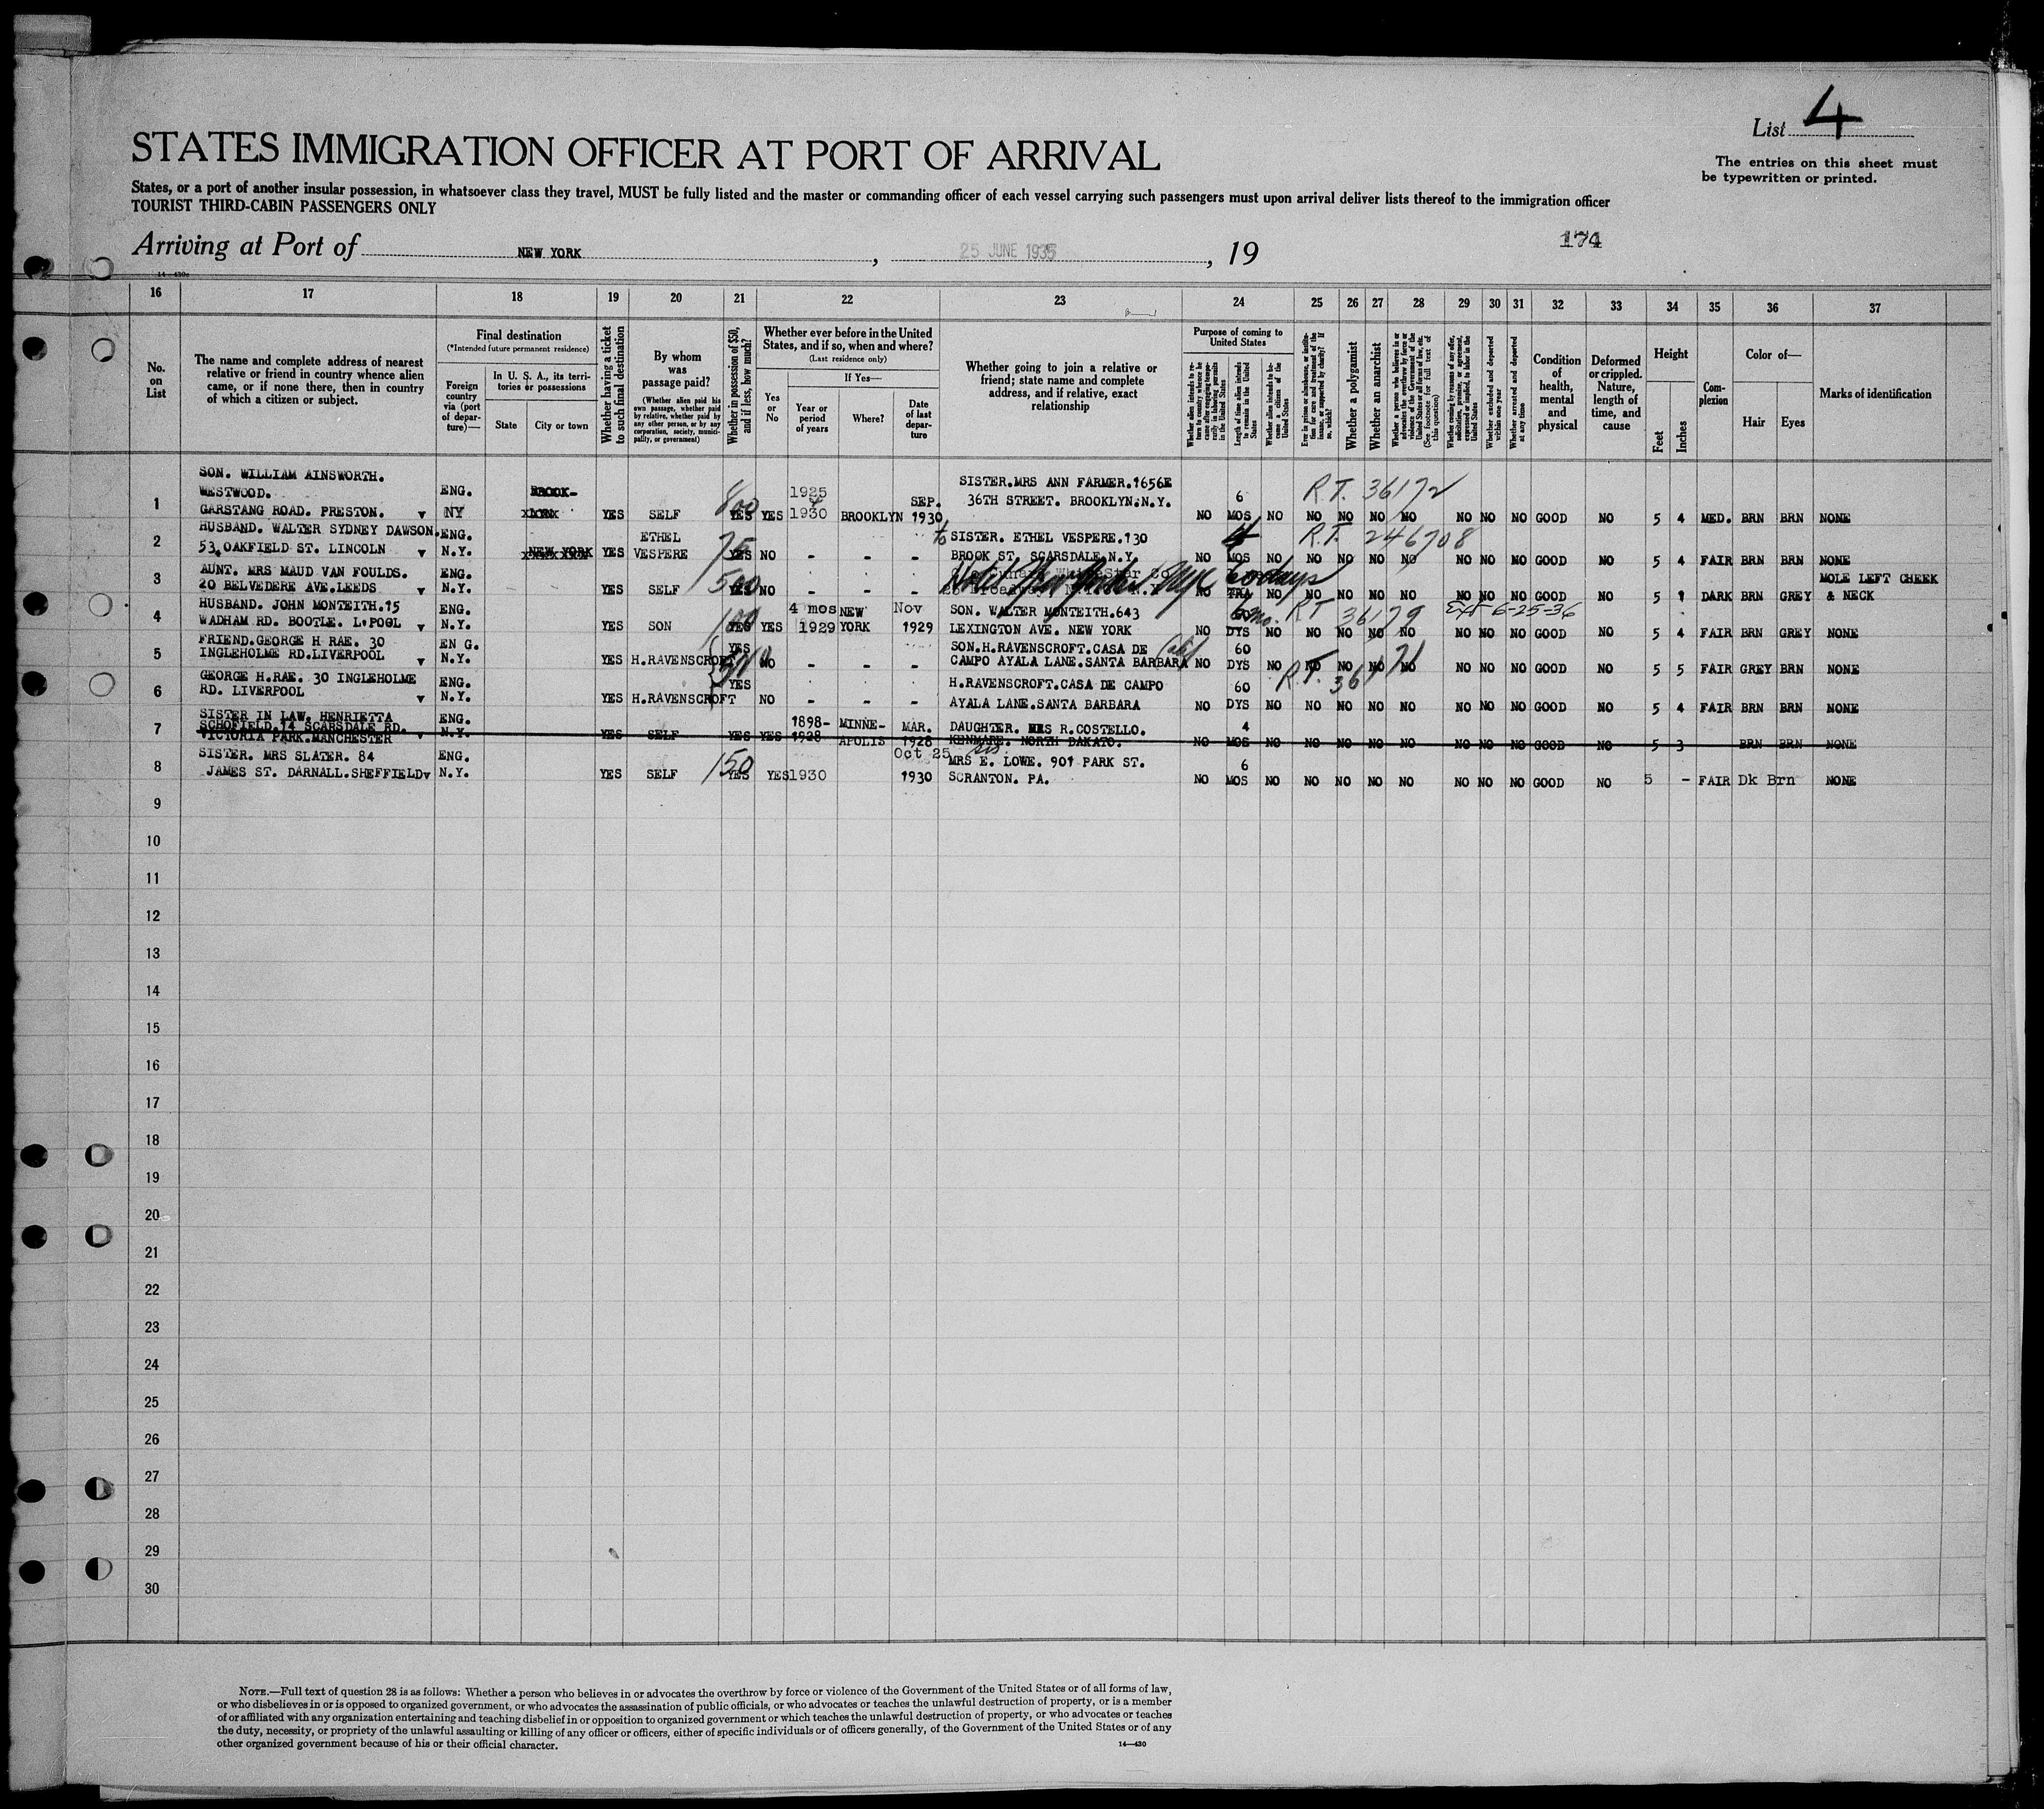 List 4
The entries on this sheet must
be typewritten or printed.
STATES IMMIGRATION OFFICER AT PORT OF ARRIVAL
States, or a port of another insular possession, in whatsoever class they travel, MUST be fully listed and the master or commanding officer of each vessel carrying such passengers must upon arrival deliver lists thereof to the immigration officer
TOURIST THIRD-CABIN PASSENGERS ONLY
Arriving at Port of NEW YORK, 25 JUNE 1935, 19
174
14-430
16 17 18 19 20 21 22 23 24 25 26 27 28 29 30 31 32 33 34 35 36 37
No. on List
The name and complete address of nearest
relative or friend in country whence alien
came, or if none there, then in country
of which a citizen or subject.
Final destination
(*Intended future permanent residence)
Foreign country via (port of departure)—
In U. S. A., its territories or possessions
State
City or town
Whether having a ticket to such final destination
By whom was passage paid?
(Whether alien paid his own passage, whether paid by relative, whether paid by any other person, or by any corporation, society, municipality, or government)
Whether in possession of $50, and if less, how much?
Whether ever before in the United States, and if so, when and where?
(Last residence only)
Yes or No
If Yes—
Year or period of years
Where?
Date of last departure
Whether going to join a relative or
friend; state name and complete
address, and if relative, exact
relationship
Purpose of coming to United States
Whether alien intends to return to country whence he came after engaging temporarily in laboring pursuits in the United States
Length of time alien intends to remain in the United States
Whether alien intends to become a citizen of the United States
Ever in prison or almshouse, or institution for care and treatment of the insane, or supported by charity? If so, which?
Whether a polygamist
Whether an anarchist
Whether a person who believes in or advocates the overthrow by force or violence of the Government of the United States or all forms of law, etc. (See footnote for full text of this question)
Whether coming by reasons of any offer, solicitation, promise, or agreement, expressed or implied, to labor in the United States
Whether excluded and deported within one year
Whether arrested and deported at any time
Condition of health, mental and physical
Deformed or crippled. Nature, length of time, and cause
Height
Feet
Inches
Complexion
Color of—
Hair
Eyes
Marks of identification
SON. WILLIAM AINSWORTH. SISTER.MRS ANN FARMER.1656E
1 WESTWOOD. ENG. BROOK- 800 1925 SEP. 36TH STREET. BROOKLYN.N.Y. 6 R.T. 36172
GARSTANG ROAD. PRESTON. NY YES SELF YES YES 1930 BROOKLYN 1930 NO MOS NO NO NO NO NO NO NO NO GOOD NO 5 4 MED. BRN BRN NONE
HUSBAND. WALTER SYDNEY DAWSON. ENG. ETHEL to SISTER. ETHEL VESPERE.130 4 R.T. 246708
2 53, OAKFIELD ST. LINCOLN N.Y. NEW YORK YES VESPERE 75 YES NO - - - BROOK ST. SCARSDALE N.Y. NO MOS NO NO NO NO NO NO NO NO GOOD NO 5 4 FAIR BRN BRN NONE
3 AUNT. MRS MAUD VAN FOULDS. ENG. 500 Hotel New Yorker NYC 60 days MOLE LEFT CHEEK
20 BELVEDERE AVE.LEEDS N.Y. YES SELF YES NO - - - NO TRA NO NO NO NO NO NO NO NO GOOD NO 5 1 DARK BRN GREY & NECK
4 HUSBAND. JOHN MONTEITH.15 ENG. 100 4 mos NEW Nov SON. WALTER MONTEITH.643 6 mo. R T 36179 Ext 6-25-36
WADHAM RD. BOOTLE. L.POOL N.Y. YES SON YES YES 1929 YORK 1929 LEXINGTON AVE. NEW YORK NO DYS NO NO NO NO NO NO NO NO GOOD NO 5 4 FAIR BRN GREY NONE
5 FRIEND.GEORGE H RAE. 30 EN G. YES SON.H.RAVENSCROFT.CASA DE 60
INGLEHOLME RD.LIVERPOOL N.Y. YES H.RAVENSCROFT NO - - - CAMPO AYALA LANE.SANTA BARBARA NO DYS NO NO NO NO NO NO NO NO GOOD NO 5 5 FAIR GREY BRN NONE
6 GEORGE H.RAE. 30 INGLEHOLME ENG. YES H.RAVENSCROFT.CASA DE CAMPO 60 R.T. 36171
RD. LIVERPOOL N.Y. YES H.RAVENSCROFT NO - - - AYALA LANE.SANTA BARBARA NO DYS NO NO NO NO NO NO NO NO GOOD NO 5 4 FAIR BRN BRN NONE
SISTER IN LAW. HENRIETTA ENG. 1898- MINNE- MAR. DAUGHTER. MRS R.COSTELLO. 4
7 SCHOFIELD.14 SCARSDALE RD.
VICTORIA PARK.MANCHESTER N.Y. YES SELF YES YES 1928 APOLIS 1928 KENMARE. NORTH DAKATO. NO MOS NO NO NO NO NO NO NO NO GOOD NO 5 3 BRN BRN NONE
8 SISTER. MRS SLATER. 84 ENG. 150 Oct 25 sis. MRS E. LOWE. 901 PARK ST. 6
JAMES ST. DARNALL.SHEFFIELD N.Y. YES SELF YES YES 1930 1930 SCRANTON. PA. NO MOS NO NO NO NO NO NO NO NO GOOD NO 5 - FAIR Dk Brn NONE
9
10
11
12
13
14
15
16
17
18
19
20
21
22
23
24
25
26
27
28
29
30
NOTE.—Full text of question 28 is as follows: Whether a person who believes in or advocates the overthrow by force or violence of the Government of the United States or of all forms of law,
or who disbelieves in or is opposed to organized government, or who advocates the assassination of public officials, or who advocates or teaches the unlawful destruction of property, or is a member
of or affiliated with any organization entertaining and teaching disbelief in or opposition to organized government or which teaches the unlawful destruction of property, or who advocates or teaches
the duty, necessity, or propriety of the unlawful assaulting or killing of any officer or officers, either of specific individuals or of officers generally, of the Government of the United States or of any
other organized government because of his or their official character.
14—430